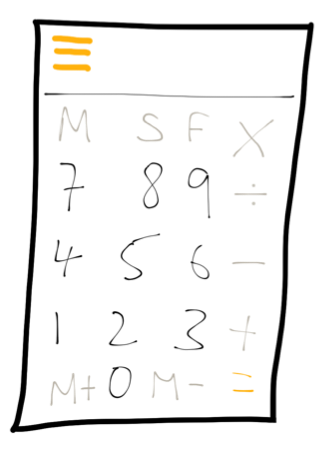 M S F X
7 8 9 ÷
4 5 6 -
1 2 3 +
M+ 0 M- =